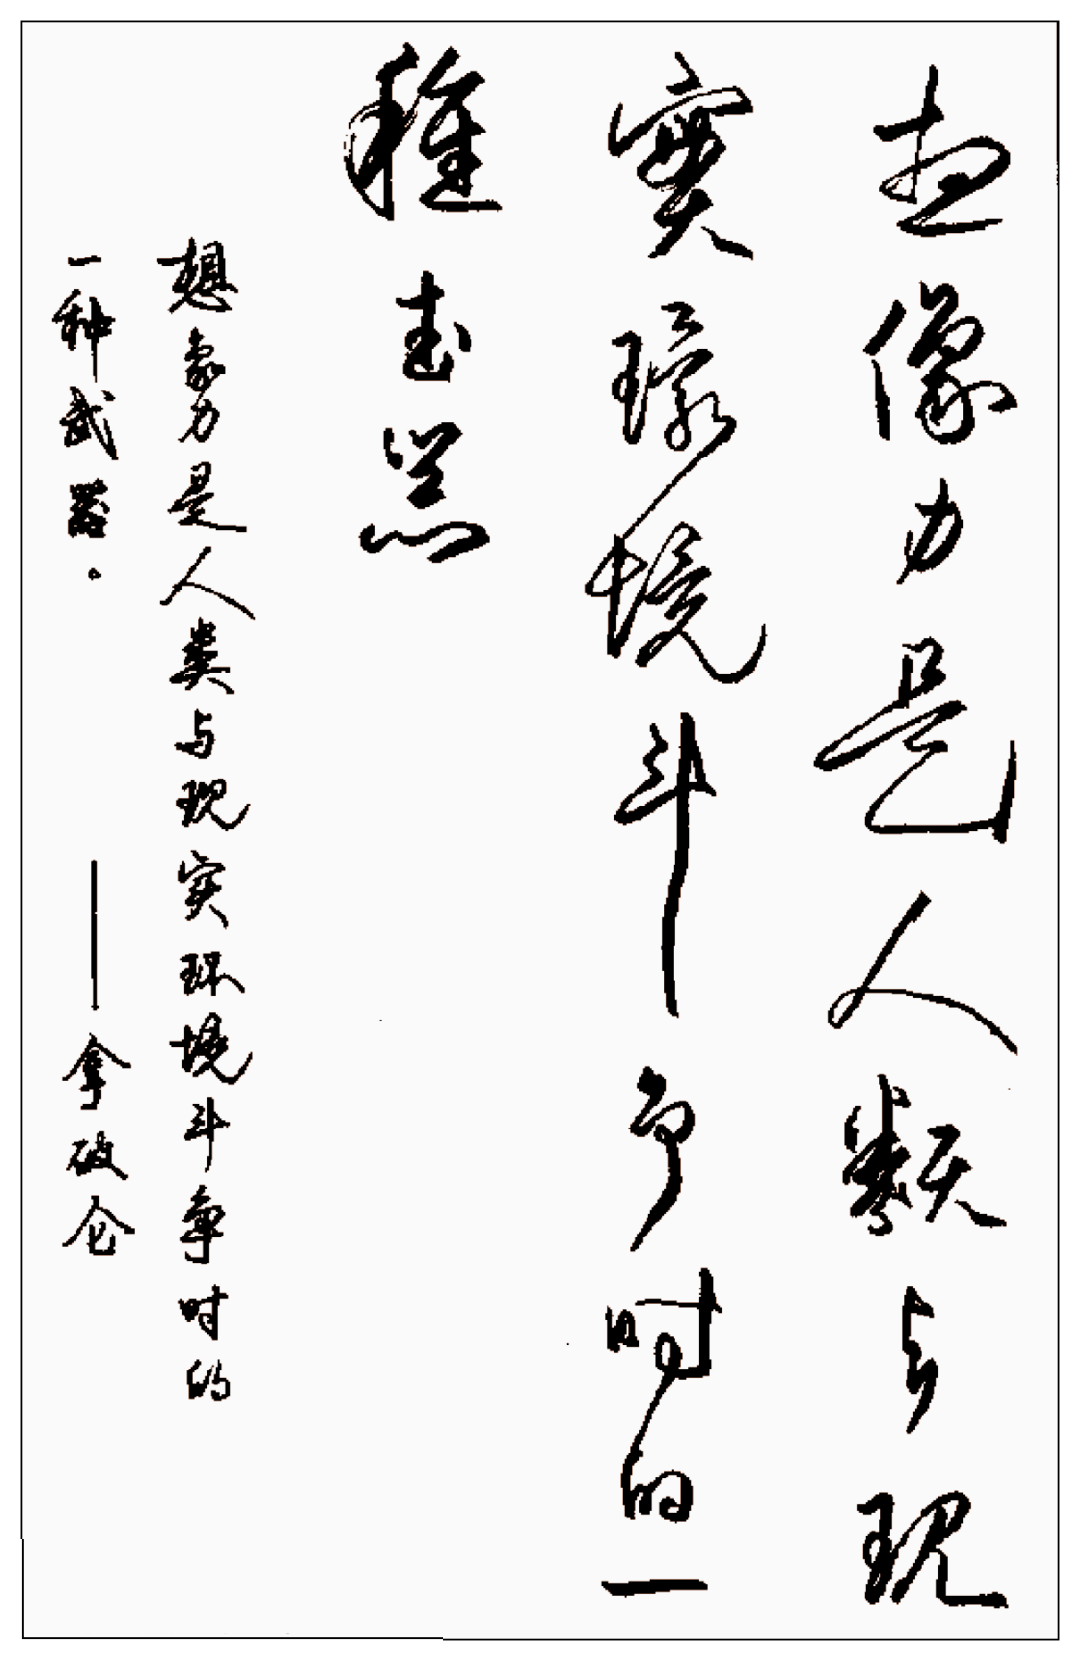 想像力是人類与现
實環境斗争时的一
種武器
想象力是人类与现实环境斗争时的
一种武器。 ——拿破仑